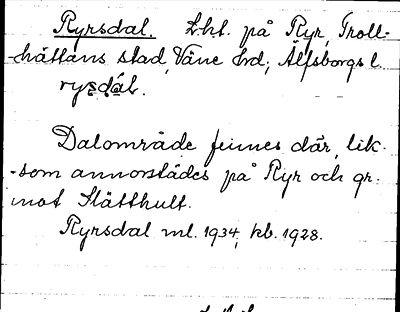 Ryrsdal. Lht. på Ryr, Troll-
hättans stad, Väne hd; Älfsborgs l.
rysdál.
Dalområde finnes där, lik-
-som annorstädes på Ryr och gr.
mot Slätthult.
Ryrsdal ml. 1934, kb. 1928.